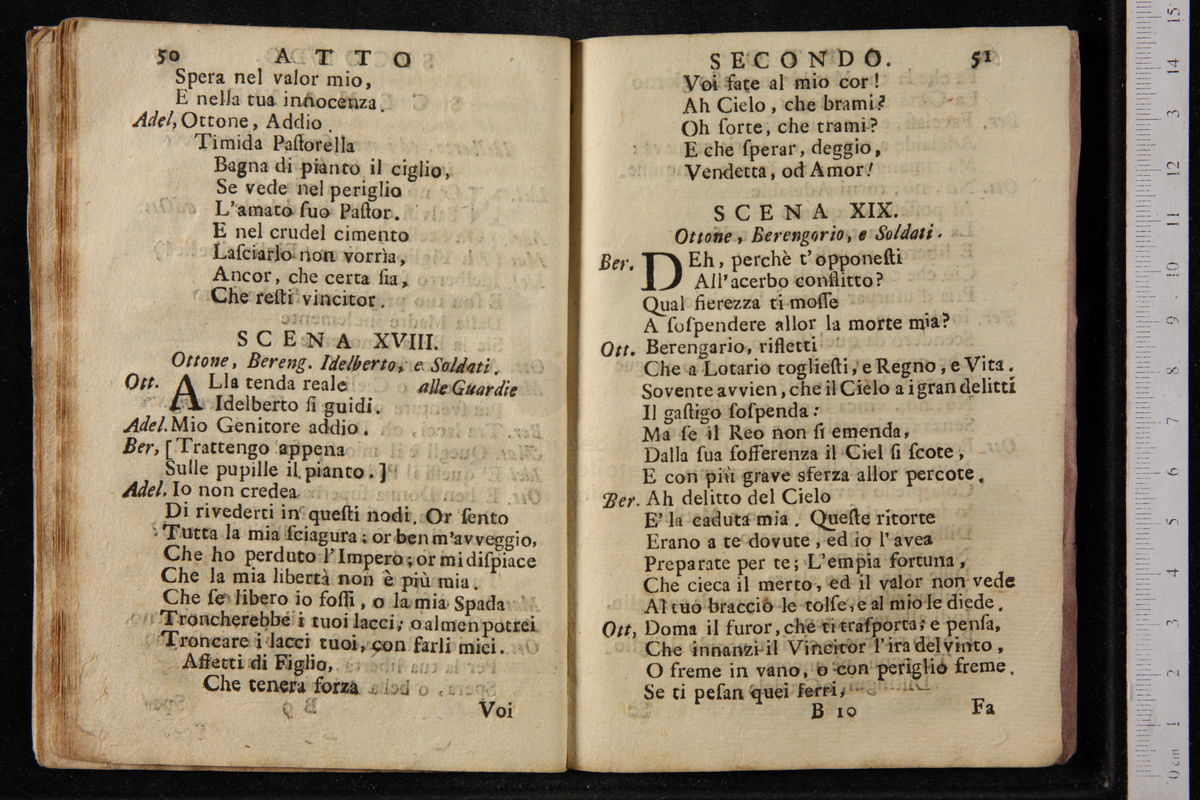 50 ATTO
Spera nel valor mio,
E nella tua innocenza.
Adel, Ottone, Addio.
Timida Paſtorella
Bagna di pianto il ciglio,
Se vede nel periglio
L'amato ſuo Paſtor.
E nel crudel cimento
Laſciarlo non vorrìa,
Ancor, che certa ſia,
Che reſti vincitor.
SCENA XVIII.
Ottone, Bereng. Idelberto, e Soldati.
Ott. ALla tenda reale alle Guardie
Idelberto ſi guidi.
Adel. Mio Genitore addio.
Ber, [Trattengo appena
Sulle pupille il pianto.]
Adel. Io non credea
Di rivederti in queſti nodi. Or ſento
Tutta la mia ſciagura; or ben m'avveggio,
Che ho perduto l'Impero; or mi diſpiace
Che la mia libertà non è più mia.
Che ſe libero io foſſi, o la mia Spada
Troncherebbe i tuoi lacci; o almen potrei
Troncare i lacci tuoi, con farli miei.
Affetti di Figlio,
Che tenera forza
B 9 Voi
SECONDO. 51
Voi fate al mio cor!
Ah Cielo, che brami?
Oh ſorte, che trami?
E che ſperar, deggio,
Vendetta, od Amor!
SCENA XIX.
Ottone, Berengorio, e Soldati.
Ber. DEh, perchè t'opponeſti
All'acerbo conflitto?
Qual fierezza ti moſſe
A ſoſpendere allor la morte mia?
Ott. Berengario, rifletti
Che a Lotario toglieſti, e Regno, e Vita.
Sovente avvien, che il Cielo a i gran delitti
Il gaſtigo ſoſpenda:
Ma ſe il Reo non ſi emenda,
Dalla ſua ſofferenza il Ciel ſi ſcote,
E con più grave sferza allor percote.
Ber. Ah delitto del Cielo
E' la caduta mia. Queſte ritorte
Erano a te dovute, ed io l'avea
Preparate per te; L'empia fortuna,
Che cieca il merto, ed il valor non vede
Al tuo braccio le tolſe, e al mio le diede.
Ott, Doma il furor, che ti traſporta; e penſa,
Che innanzi il Vincitor l'ira del vinto,
O freme in vano, o con periglio freme.
Se ti peſan quei ferri,
B 10 Fa